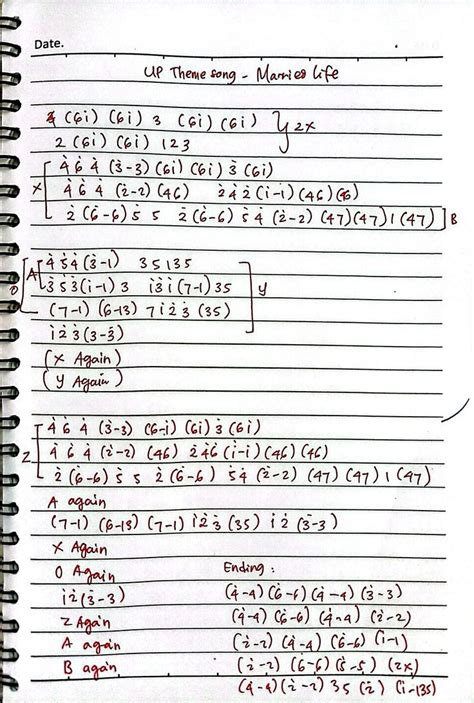 Date.
UP Theme song - Married life
4 (6i) (6i) 3 (6i) (6i) } 2x
2 (6i) (6i) 1 2 3
X [ 4̇ 6̇ 4̇ (3̇-3) (6i) (6i) 3̇ (6i)
4̇ 6̇ 4̇ (2̇-2) (46) 2̇ 4̇ 2̇ (i-1) (46) (46)
2̇ (6̇-6) 5̇ 5 2̇ (6̇-6) 5̇ 4̇ (2̇-2) (47) (47) 1 (47) ] B
A [ 4̇ 5̇ 4̇ (3̇-1) 3 5 1 3 5
O [ 3̇ 5̇ 3̇ (i-1) 3 i 3̇ i (7-1) 3 5 ] Y
(7-1) (6-13) 7 i 2̇ 3̇ (35)
i 2̇ 3̇ (3-3̇)
(X Again)
(Y Again)
Z [ 4̇ 6̇ 4̇ (3̇-3) (6-i) (6i) 3̇ (6i)
4̇ 6̇ 4̇ (2̇-2) (46) 2̇ 4̇ 6̇ (i-i) (46) (46)
2̇ (6̇-6) 5̇ 5 2̇ (6̇-6) 5̇ 4̇ (2̇-2) (47) (47) 1 (47)
A again
(7-1) (6-13) (7-1) i 2̇ 3̇ (35) i 2̇ (3̇-3)
X Again
O Again
i 2̇ (3̇-3)
Z Again
A again
B again
Ending :
(4̇-4) (6̇-6) (4̇-4) (3̇-3)
(4̇-4) (6̇-6) (4̇-4) (2̇-2)
(2̇-2) (4̇-4) (6̇-6) (i-1)
(2̇-2) (6̇-6) (5̇-5) (2x)
(4̇-4) (2̇-2) 3 5 (2̇) (i-135)